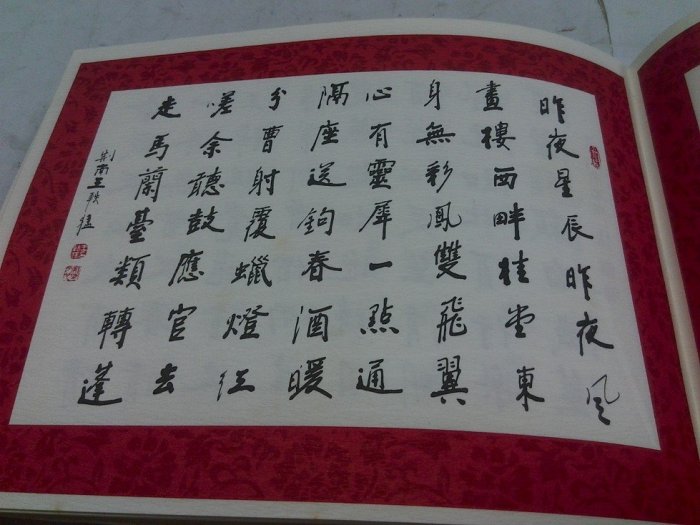 昨夜星辰昨夜風
畫樓西畔桂堂東
身無彩鳳雙飛翼
心有靈犀一點通
隔座送鉤春酒暖
分曹射覆蠟燈紅
嗟余聽鼓應官去
走馬蘭臺類轉蓬
荆南王